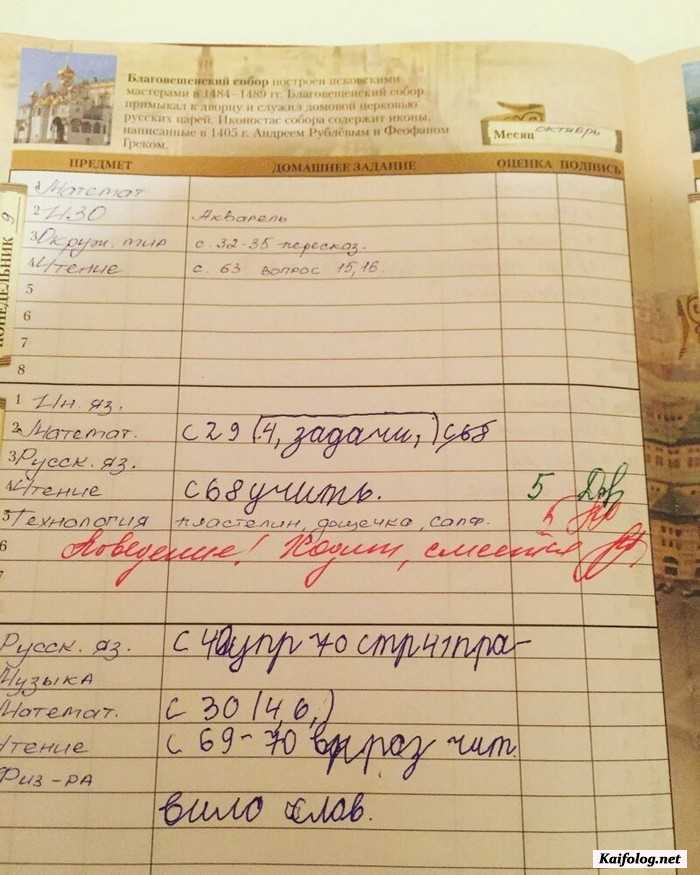 Благовещенский собор построен псковскими
мастерами в 1484–1489 гг. Благовещенский собор
примыкал к дворцу и служил домовой церковью
русских царей. Иконостас собора содержит иконы,
написанные в 1405 г. Андреем Рублёвым и Феофаном
Греком.
Месяц октябрь
ПРЕДМЕТ ДОМАШНЕЕ ЗАДАНИЕ ОЦЕНКА ПОДПИСЬ
ПОНЕДЕЛЬНИК 9
1 Математ
2 ИЗО Акварель
3 Окруж. мир с. 32-35 пересказ.
4 Чтение с. 63 вопрос 15,16.
5
6
7
8
1 Ин. яз.
2 Математ. с 29 (4, задачи,) с68
3 Русск. яз.
4 Чтение с68 учить. 5
5 Технология пластелин, дощечка, салф. 5
6 Поведение! Ходит, смеется
7
Русск. яз. с 40 упр 70 стр 41 пра-
Музыка
Математ. с 30 (4, 6,)
Чтение с 69-70 выраз чит.
Физ-ра
вило слов.
Kaifolog.net